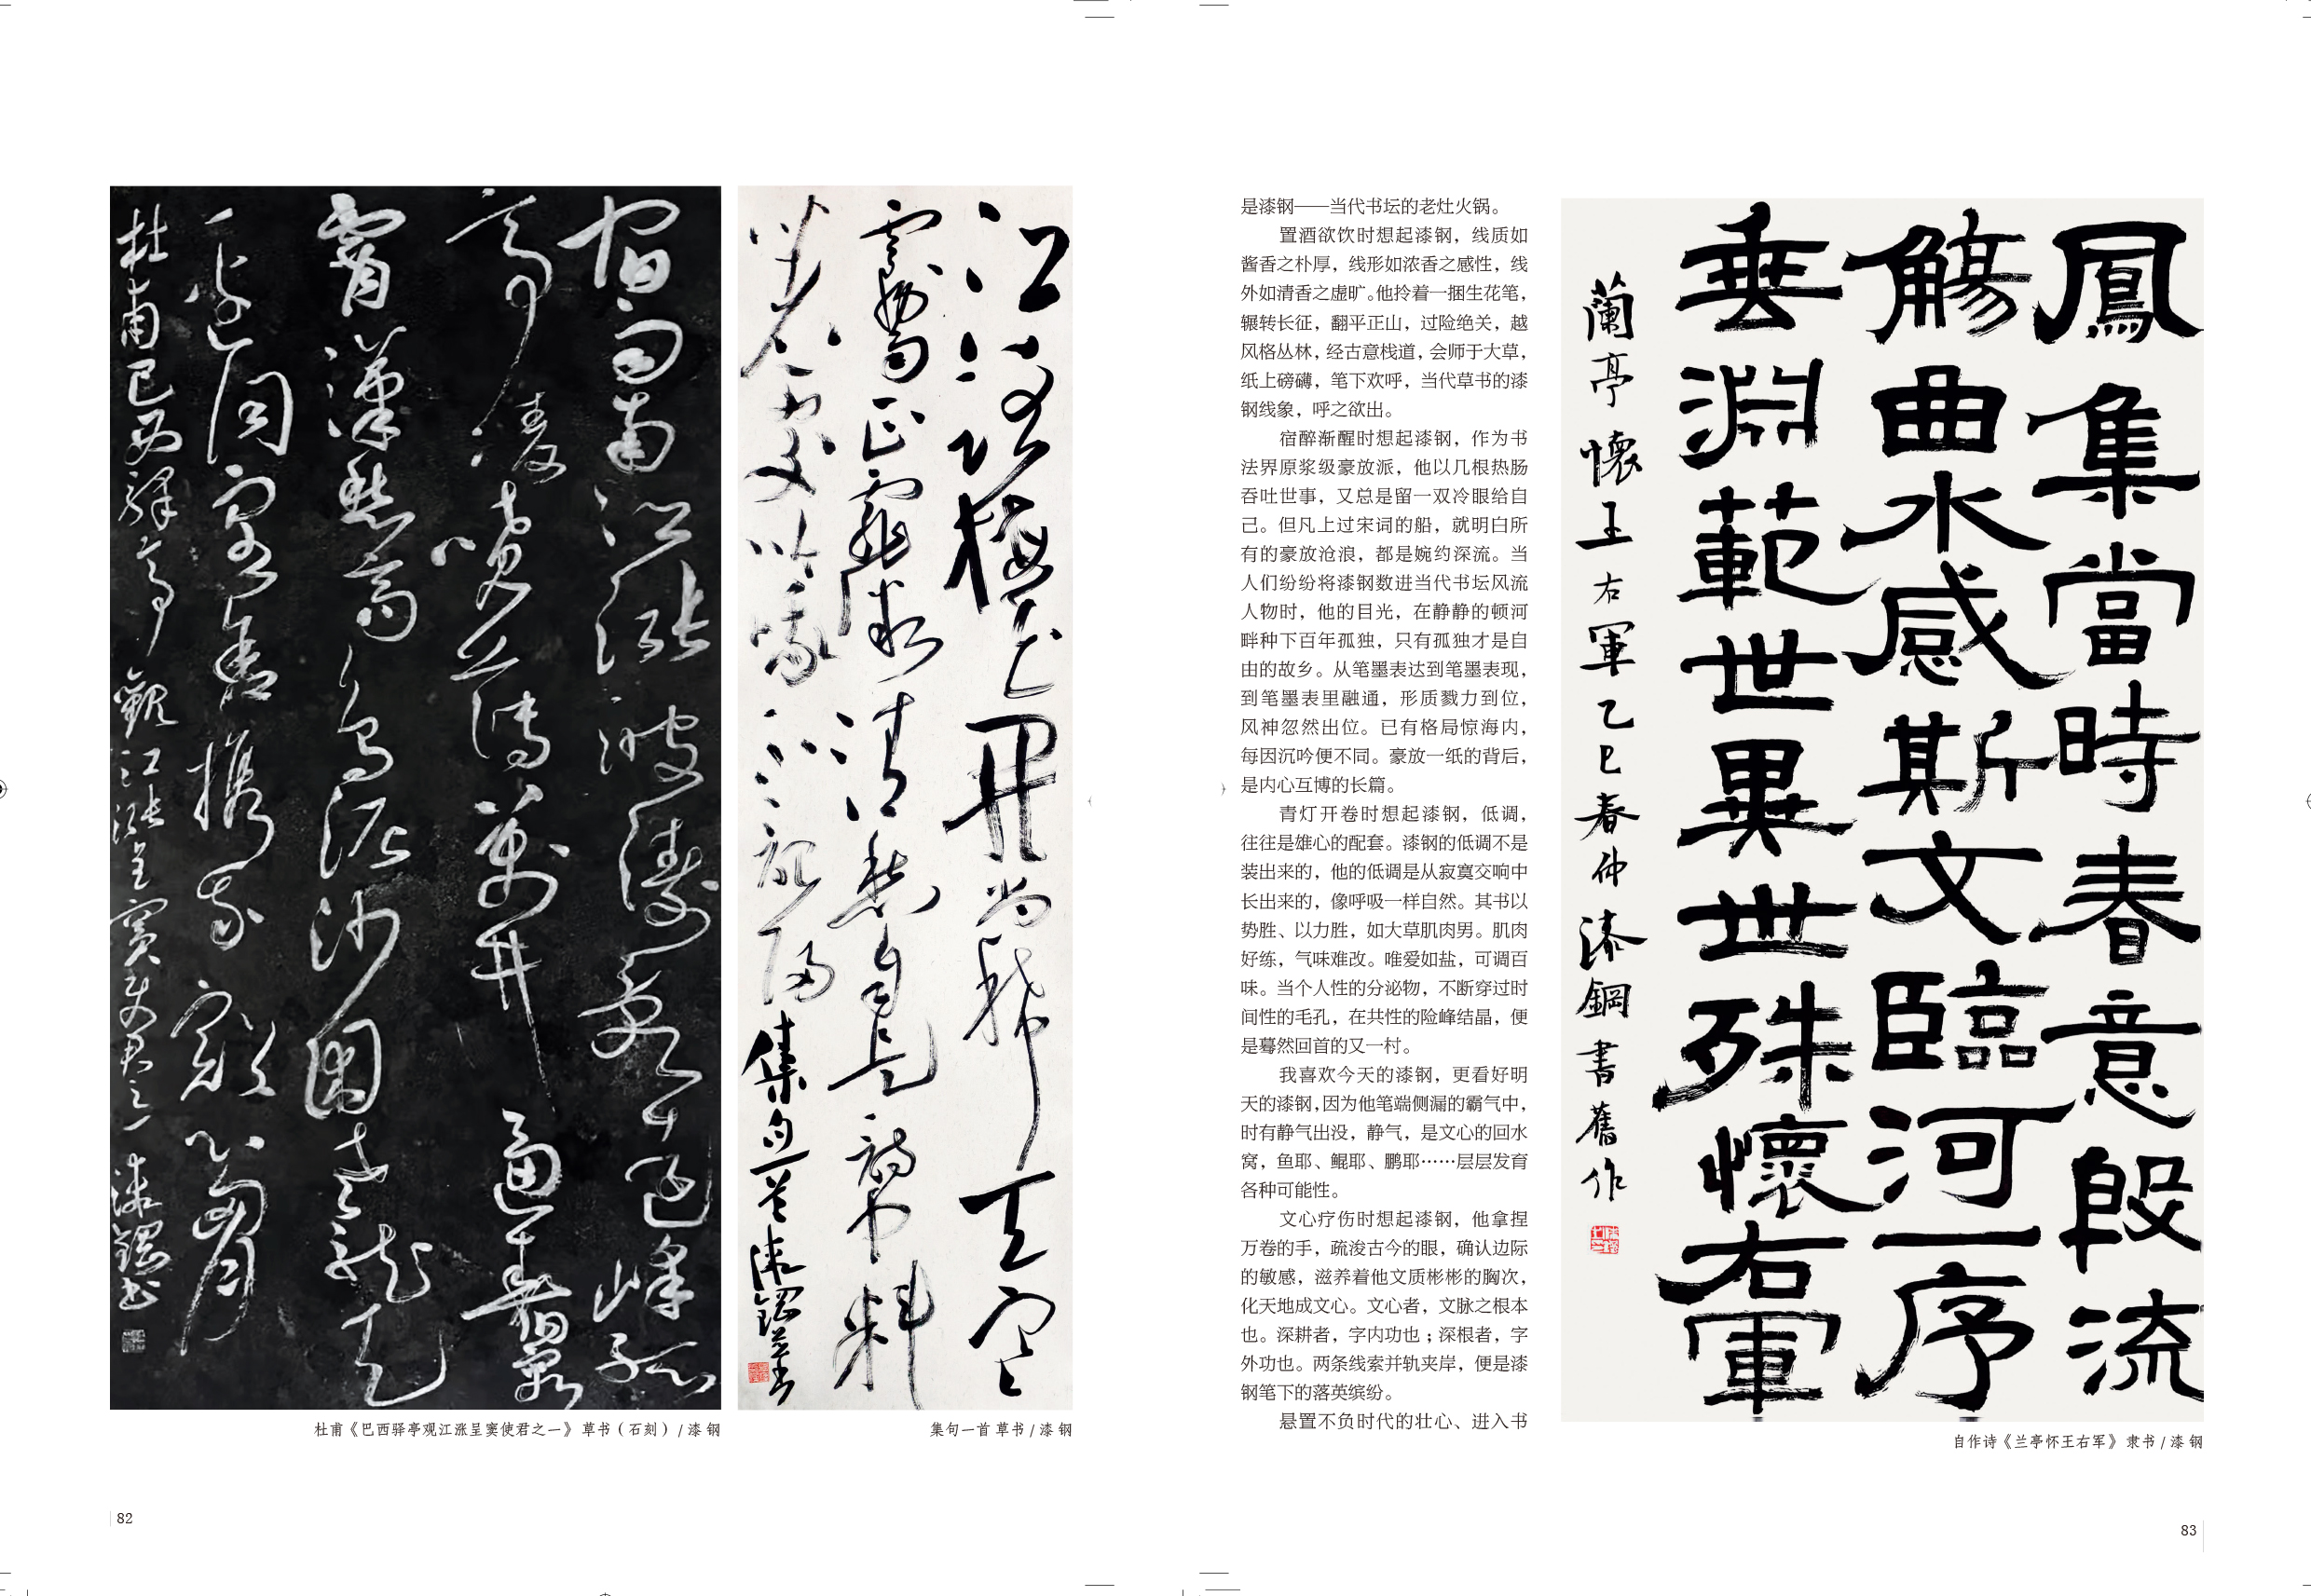 宿雨南江涨波涛乱远峰孤
亭凌喷薄万井逼舂容
霄汉愁高鸟泥沙困老龙天
边同客舍携我豁心胸
杜甫巴西驿亭觀江漲呈竇使君之一 漆鋼书
杜甫《巴西驿亭观江涨呈窦使君之一》 草书（石刻） / 漆 钢
集句一首 漆鋼草书
集句一首 草书 / 漆 钢
82
是漆钢——当代书坛的老灶火锅。
置酒欲饮时想起漆钢，线质如
酱香之朴厚，线形如浓香之感性，线
外如清香之虚旷。他拎着一捆生花笔，
辗转长征，翻平正山，过险绝关，越
风格丛林，经古意栈道，会师于大草，
纸上磅礴，笔下欢呼，当代草书的漆
钢线象，呼之欲出。
宿醉渐醒时想起漆钢，作为书
法界原浆级豪放派，他以几根热肠
吞吐世事，又总是留一双冷眼给自
己。但凡上过宋词的船，就明白所
有的豪放沧浪，都是婉约深流。当
人们纷纷将漆钢数进当代书坛风流
人物时，他的目光，在静静的顿河
畔种下百年孤独，只有孤独才是自
由的故乡。从笔墨表达到笔墨表现，
到笔墨表里融通，形质戮力到位，
风神忽然出位。已有格局惊海内，
每因沉吟便不同。豪放一纸的背后，
是内心互博的长篇。
青灯开卷时想起漆钢，低调，
往往是雄心的配套。漆钢的低调不是
装出来的，他的低调是从寂寞交响中
长出来的，像呼吸一样自然。其书以
势胜、以力胜，如大草肌肉男。肌肉
好练，气味难改。唯爱如盐，可调百
味。当个人性的分泌物，不断穿过时
间性的毛孔，在共性的险峰结晶，便
是蓦然回首的又一村。
我喜欢今天的漆钢，更看好明
天的漆钢，因为他笔端侧漏的霸气中，
时有静气出没，静气，是文心的回水
窝，鱼耶、鲲耶、鹏耶……层层发育
各种可能性。
文心疗伤时想起漆钢，他拿捏
万卷的手，疏浚古今的眼，确认边际
的敏感，滋养着他文质彬彬的胸次，
化天地成文心。文心者，文脉之根本
也。深耕者，字内功也；深根者，字
外功也。两条线索并轨夹岸，便是漆
钢笔下的落英缤纷。
悬置不负时代的壮心、进入书
鳳集當時春意殷流
觴曲水感斯文臨河一序
垂淵範世異世殊懷右軍
蘭亭懷王右軍 乙巳春仲 漆鋼書舊作
自作诗《兰亭怀王右军》 隶书 / 漆 钢
83